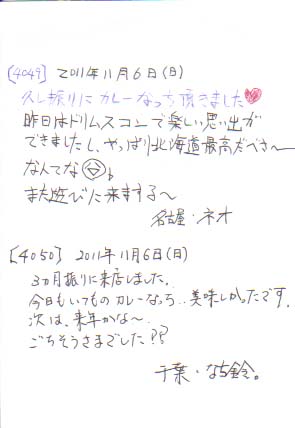 [4049] 2011年11月6日(日)
久し振りにカレーなっち頂きました
昨日はドリムスコンで楽しい思い出が
できましたし、やっぱり北海道最高だべさ〜
なんてな
また遊びに来まする〜
名古屋・ネオ
[4050] 2011年11月6日(日)
3ヵ月振りに来店しました。
今日もいつものカレーなっち‥美味しかったです。
次は、来年かな〜
ごちそうさまでした??
千葉・なち鈴。